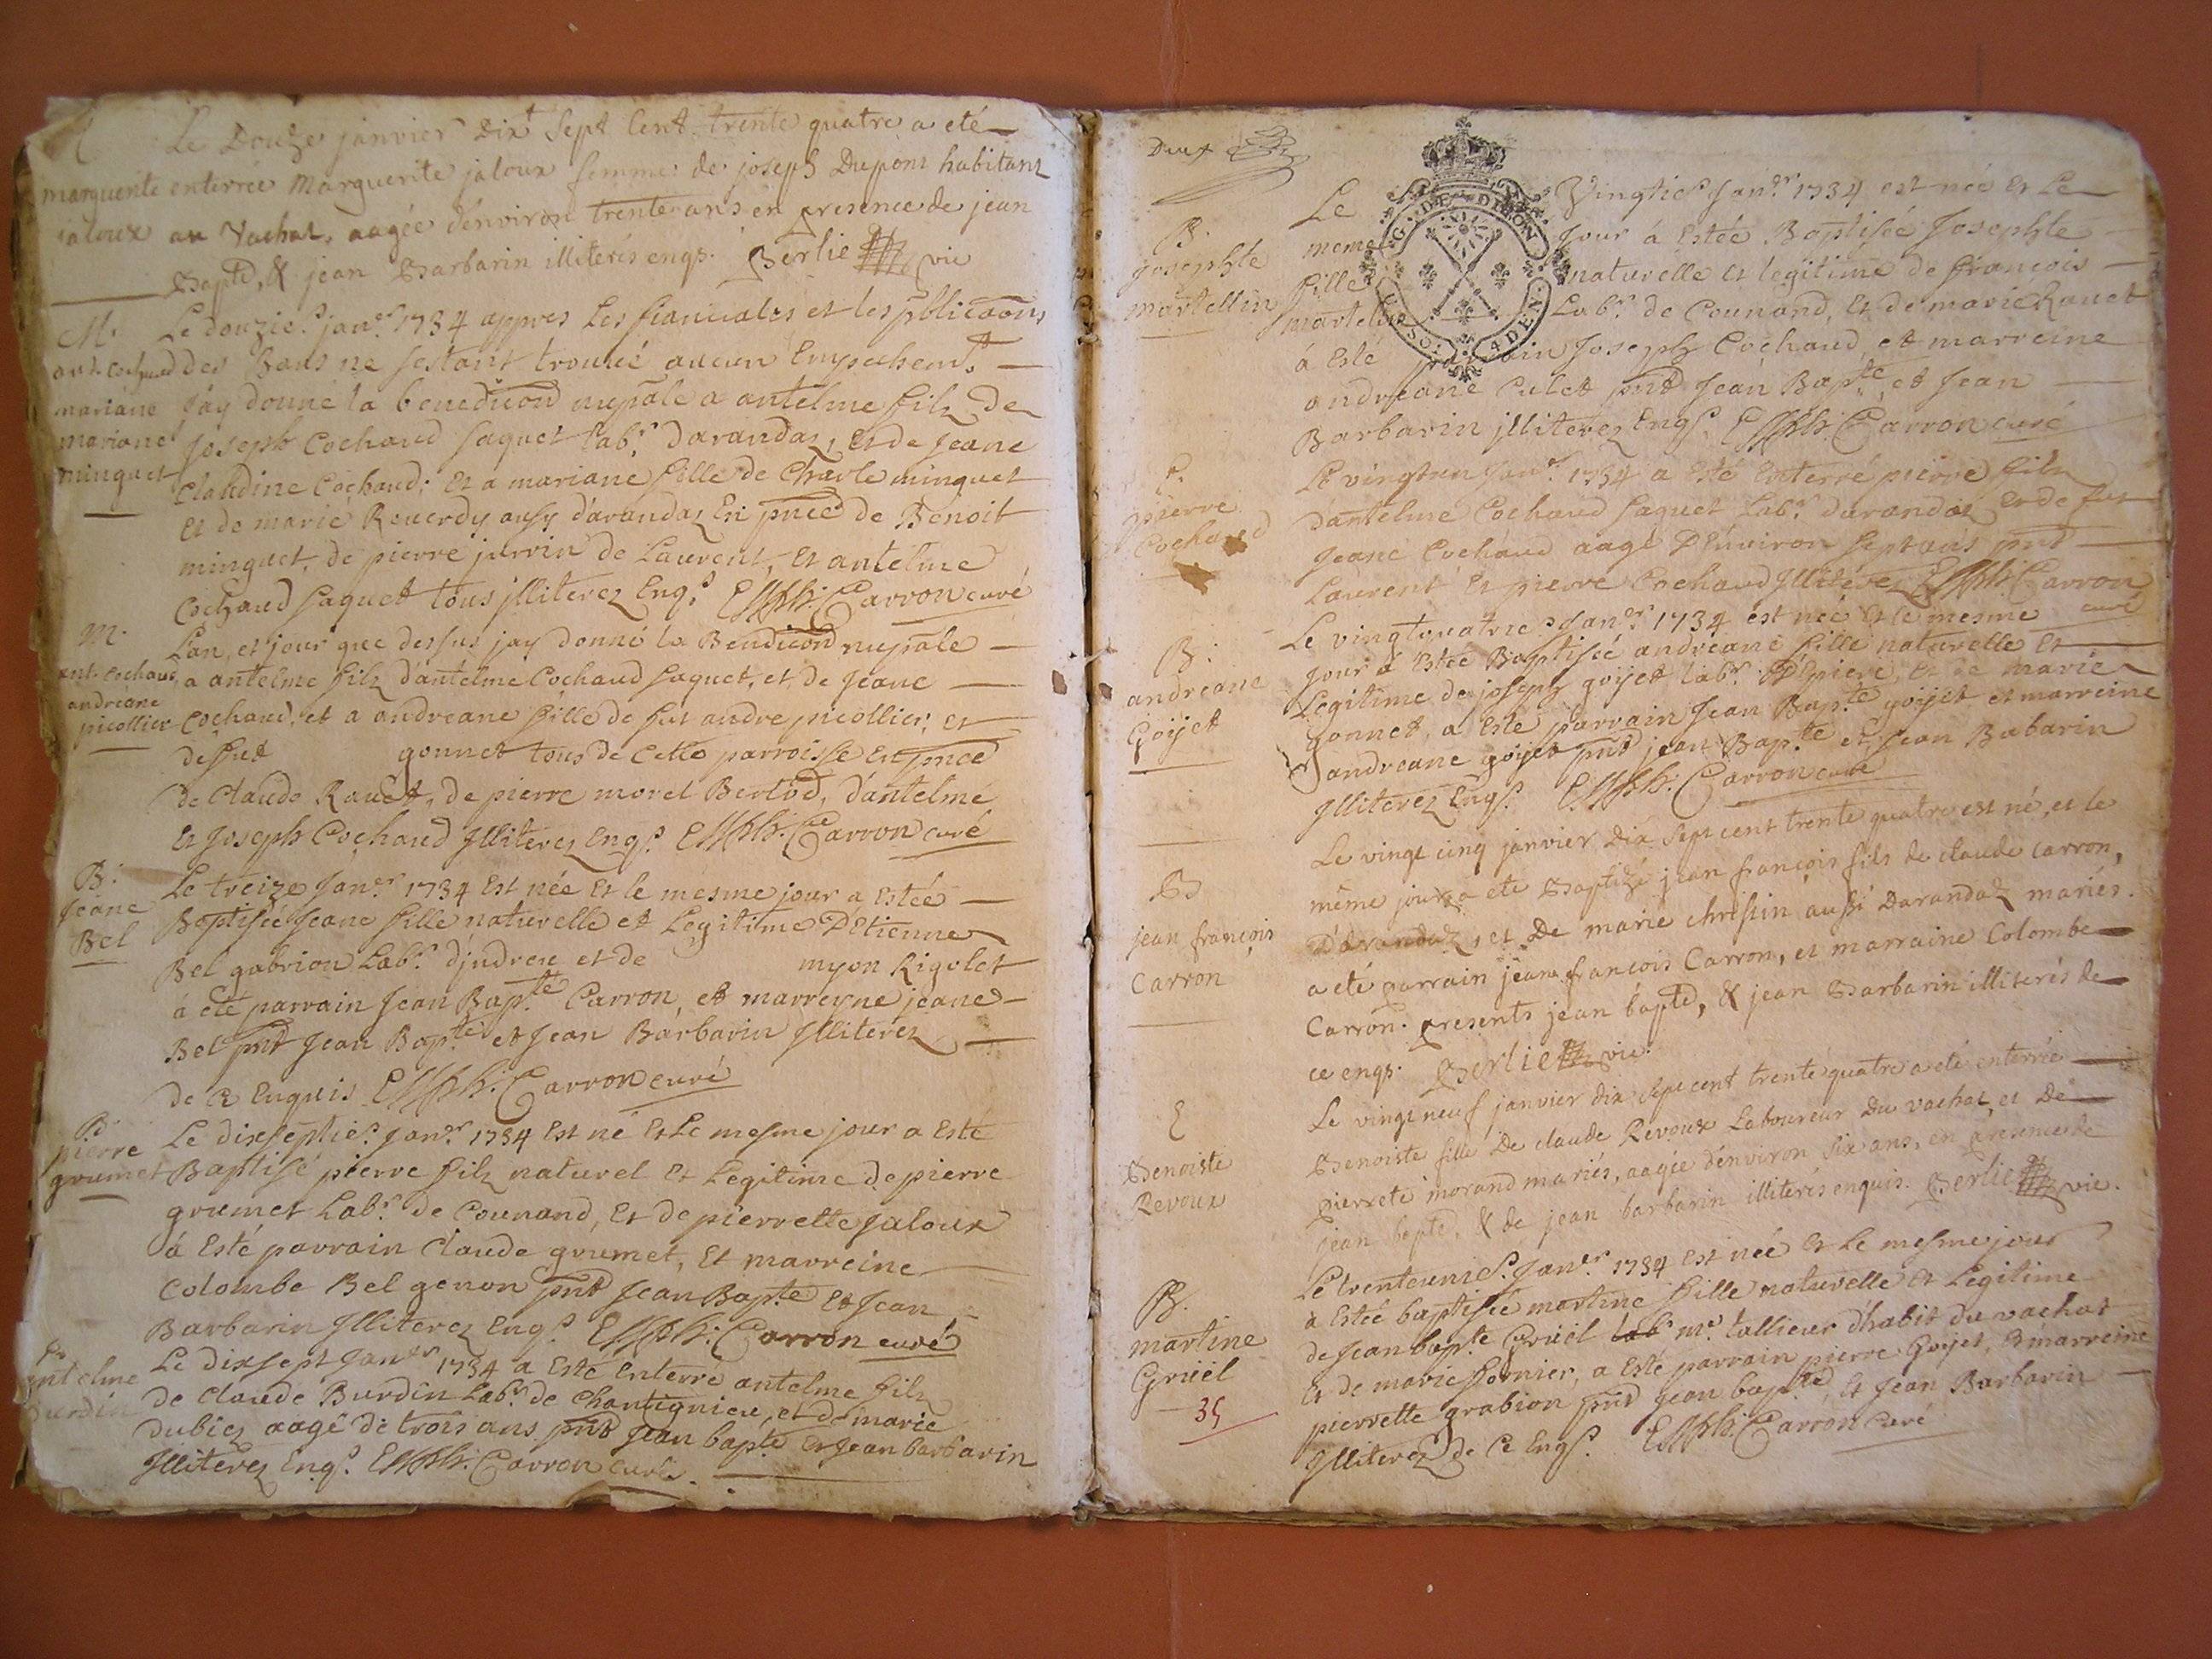 Le Douze janvier Dix Sept Cent trente quatre a eté
marguerite enterrée Marguerite jaloux femme de joseph Dupont habitant
jaloux au Vachat, aagée d'environ trente ans en presence de jean
Bapte, & jean Barbarin illiterés enqs. Berlie vic
M. Le douzie. janer 1734 appres Les fiancialles et les pblicaons
ant. Cochaud des Bans ne sestant trouvé aucun Empechemt.
mariane J'ay donné la benediction nupale a antelme filz de
mariane Joseph Cochaud Saquet labr. darandaz, et de Jeane
minguet Claudine Cochaud; Et a mariane fille de Charle minguet
Et de marie Reverdy ausy d'arandaz En pnce de Benoit
minguet, de pierre jurrin de Laurent, et antelme
Cochaud Saquet tous jlliterez Enqs. Carron curé
M. Lan, et jour que dessus jay donné la Benedicon nupale
ant. Cochaud a antelme filz d'antelme Cochaud Saquet, et de Jeane
andréane
picollier Cochaud, et a andreane fille de fut andre picollier, et
de fut gonnet tous de Cette parroisse En pnce
de Claude Ravet, de pierre morel Bertod, d'antelme
Et Joseph Cochaud Jlliterez Enqs. Carron curé
B. Le treize Janer 1734 Est née Et le mesme jour a Estée
Jeane Baptisée Jeane fille naturelle et Legitime D'Etienne
Bel Bel gabrion Labr. d'jndreu et de myon Rigolet
á eté parrain Jean Bapte Carron et marreyne jeane
Bel pnt Jean Bapte et Jean Barbarin Jlliterez
de ce Enquis Carron curé
B. Le dixseptie. Janer 1734 Est né Et Le mesme jour a Esté
pierre
grumet Baptisé pierre filz naturel Et Legitime de pierre
grumet Labr. de Counand, Et de pierrette Jaloux
á Esté parrain Claude grumet, Et marreine
Colombe Bel genon pnt Jean Bapte Et Jean
Barbarin Jlliterez Enqs. Carron curé
Le dixsept Janer 1734 a Esté Enterre antelme filz
antelme
burdin de Claude Burdin Labr. de Chantignieu, et de marie
dubiez aagé de trois ans pnt Jean bapte Et Jean barbarin
Jlliterez Enqs. Carron curé
Deux
G. DE DIJON
4 DEN.
Le Vingtie. Janer 1734 est née Et Le
B. meme Jour á Estée Baptisée Josephte
josephte fille naturelle et legitime de francois
martellin martelin Labr. de Counand, Et de marie Ravet
á Esté parrain Joseph Cochaud et marreine
andreane Culet pnt Jean Bapte et Jean
Barbarin jlliterez Enqs. Carron curé
Le vingtun Janer 1734 a Esté Enterré pierre filz
pierre d'antelme Cochaud Saquet Labr. darandaz Et de fut
Cochaud Jeane Cochaud aagé D'Environ Sept ans pnt
Laurent Et pierre Cochaud Jlliterez Carron
curé
Le vingtquatrie. Janer 1734 est née Et le mesme
B. Jour á Estée Baptisée andréane fille naturelle Et
andreane Legitime de joseph goijet labr. Et de marie
Goijet gonnet, a Esté parrain Jean Bapte goijet et marreine
andreane goijet pnt jean Bapte et Jean Babarin
Jlliterez Enqs. Carron curé
Le vingt cinq janvier Dix Sept cent trente quatre est né, et le
B même jour a eté Baptizé jean françois fils de claude carron,
jean françois D'arandaz, et De marie christin aussi Darandaz mariés.
Carron a eté parrain jean françois Carron, et marraine Colombe
Carron. presents jean bapte, & jean Barbarin illiterés de
ce enqs. Berlie vic.
E Le vingt neuf janvier dix sept cent trente quatre a eté enterrée
Benoiste Benoiste fille De claude Revoux Laboureur Du vachat, et De
Revoux pierrete morand mariés, aagée d'environ six ans, en presence de
jean bapte, & de jean barbarin illiterés enquis. Berlie vic.
Le trenteunie. Janer 1734 Est née Et Le mesme jour
B. a Estée baptisée martine fille naturelle Et Legitime
martine de Jean bapte Grüel labr me. tallieur d'habit du vachat
Grüel Et de marie fornier, a Esté parrain pierre Goijet, Et marreine
35 pierrette grabion pnt Jean bapte, Et Jean Barbarin
Jlliterez de Ce Enqs. Carron curé